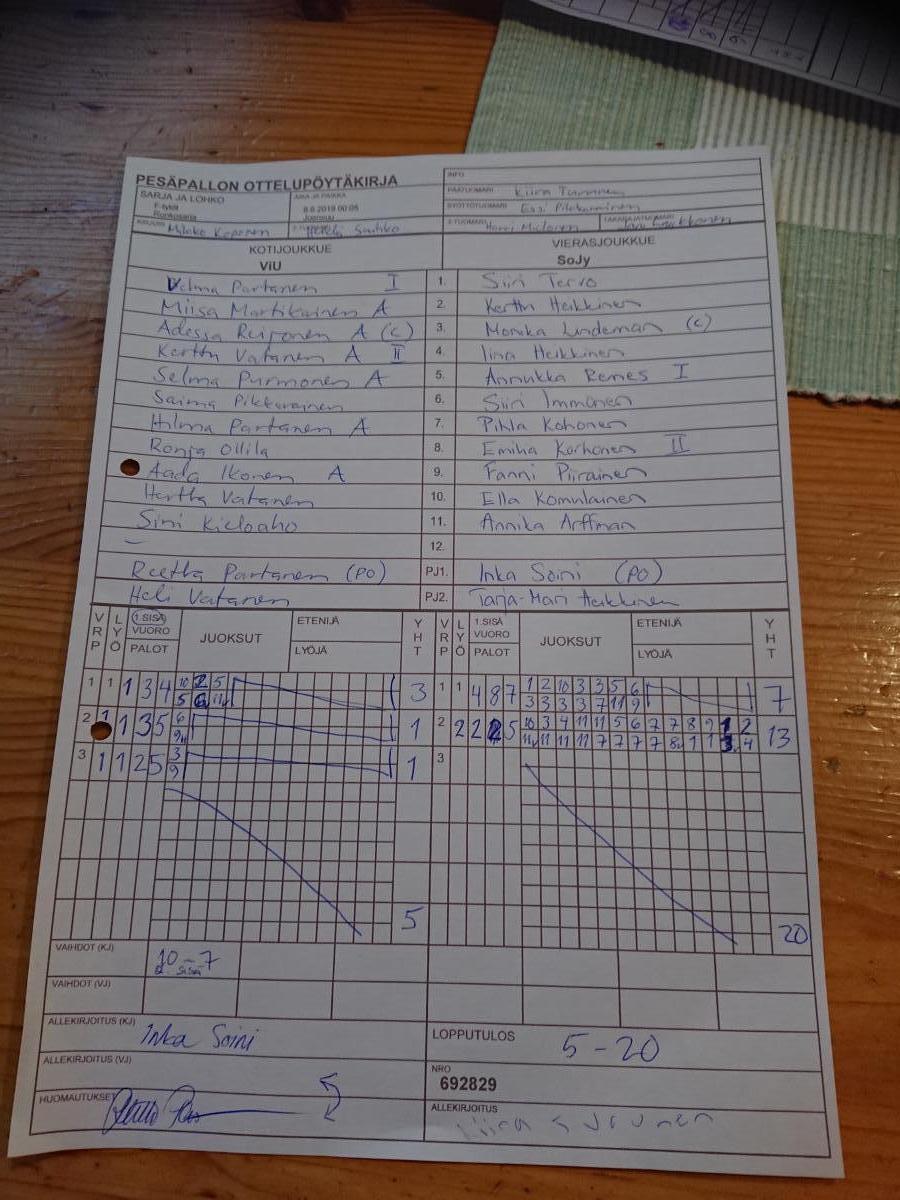 PESÄPALLON OTTELUPÖYTÄKIRJA
INFO
SARJA JA LOHKO
F-tytöt
Ronkosarja
AIKA JA PAIKKA
8.6.2019 00:05
Joensuu
PÄÄTUOMARI Kiira Turunen
SYÖTTÖTUOMARI Essi Pikkarainen
KIRJURI
2-TUOMARI
TAKARAJATUOMARI
KOTIJOUKKUE
ViU
VIERASJOUKKUE
SoJy
Velma Partanen I 1. Siiri Tervo
Miisa Martikainen A 2. Kerttu Heikkinen
Adessa Reijonen A (c) 3. Monika Lindeman (c)
Kerttu Vatanen A II 4. Iina Heikkinen
Selma Purmonen A 5. Annukka Remes I
Saima Pikkarainen 6. Siiri Immonen
Hilma Partanen A 7. Pihla Kohonen
Ronja Ollila 8. Emilia Korhonen II
Aada Ikonen A 9. Fanni Piirainen
Hertta Vatanen 10. Ella Komulainen
Sini Kieloaho 11. Annika Arffman
– 12.
Reetta Partanen (PO) PJ1. Inka Soini (PO)
Heli Vatanen PJ2. Tarja-Mari Heikkinen
VRP LYÖ 1.SISÄ VUORO PALOT JUOKSUT ETENIJÄ LYÖJÄ YHT VRP LYÖ 1.SISÄ VUORO PALOT JUOKSUT ETENIJÄ LYÖJÄ YHT
1 1 1 3 4 10 2 5 3 1 1 4 8 7 1 2 10 3 3 5 6 7
5 6 11v 3 3 3 3 7 11 9
2 1 1 3 5 6 1 2 2 2 2 5 10 3 4 11 11 5 6 7 7 8 9 1 2 13
9v 11v 11 11 11 7 7 7 7 8v 1 1 3 4
3 1 1 2 5 3 1 3
9
5 20
VAIHDOT (KJ) 10–7
2. sisä
VAIHDOT (VJ)
ALLEKIRJOITUS (KJ) Inka Soini
LOPPUTULOS 5–20
ALLEKIRJOITUS (VJ)
NRO
692829
HUOMAUTUKSET
ALLEKIRJOITUS Kiira Turunen